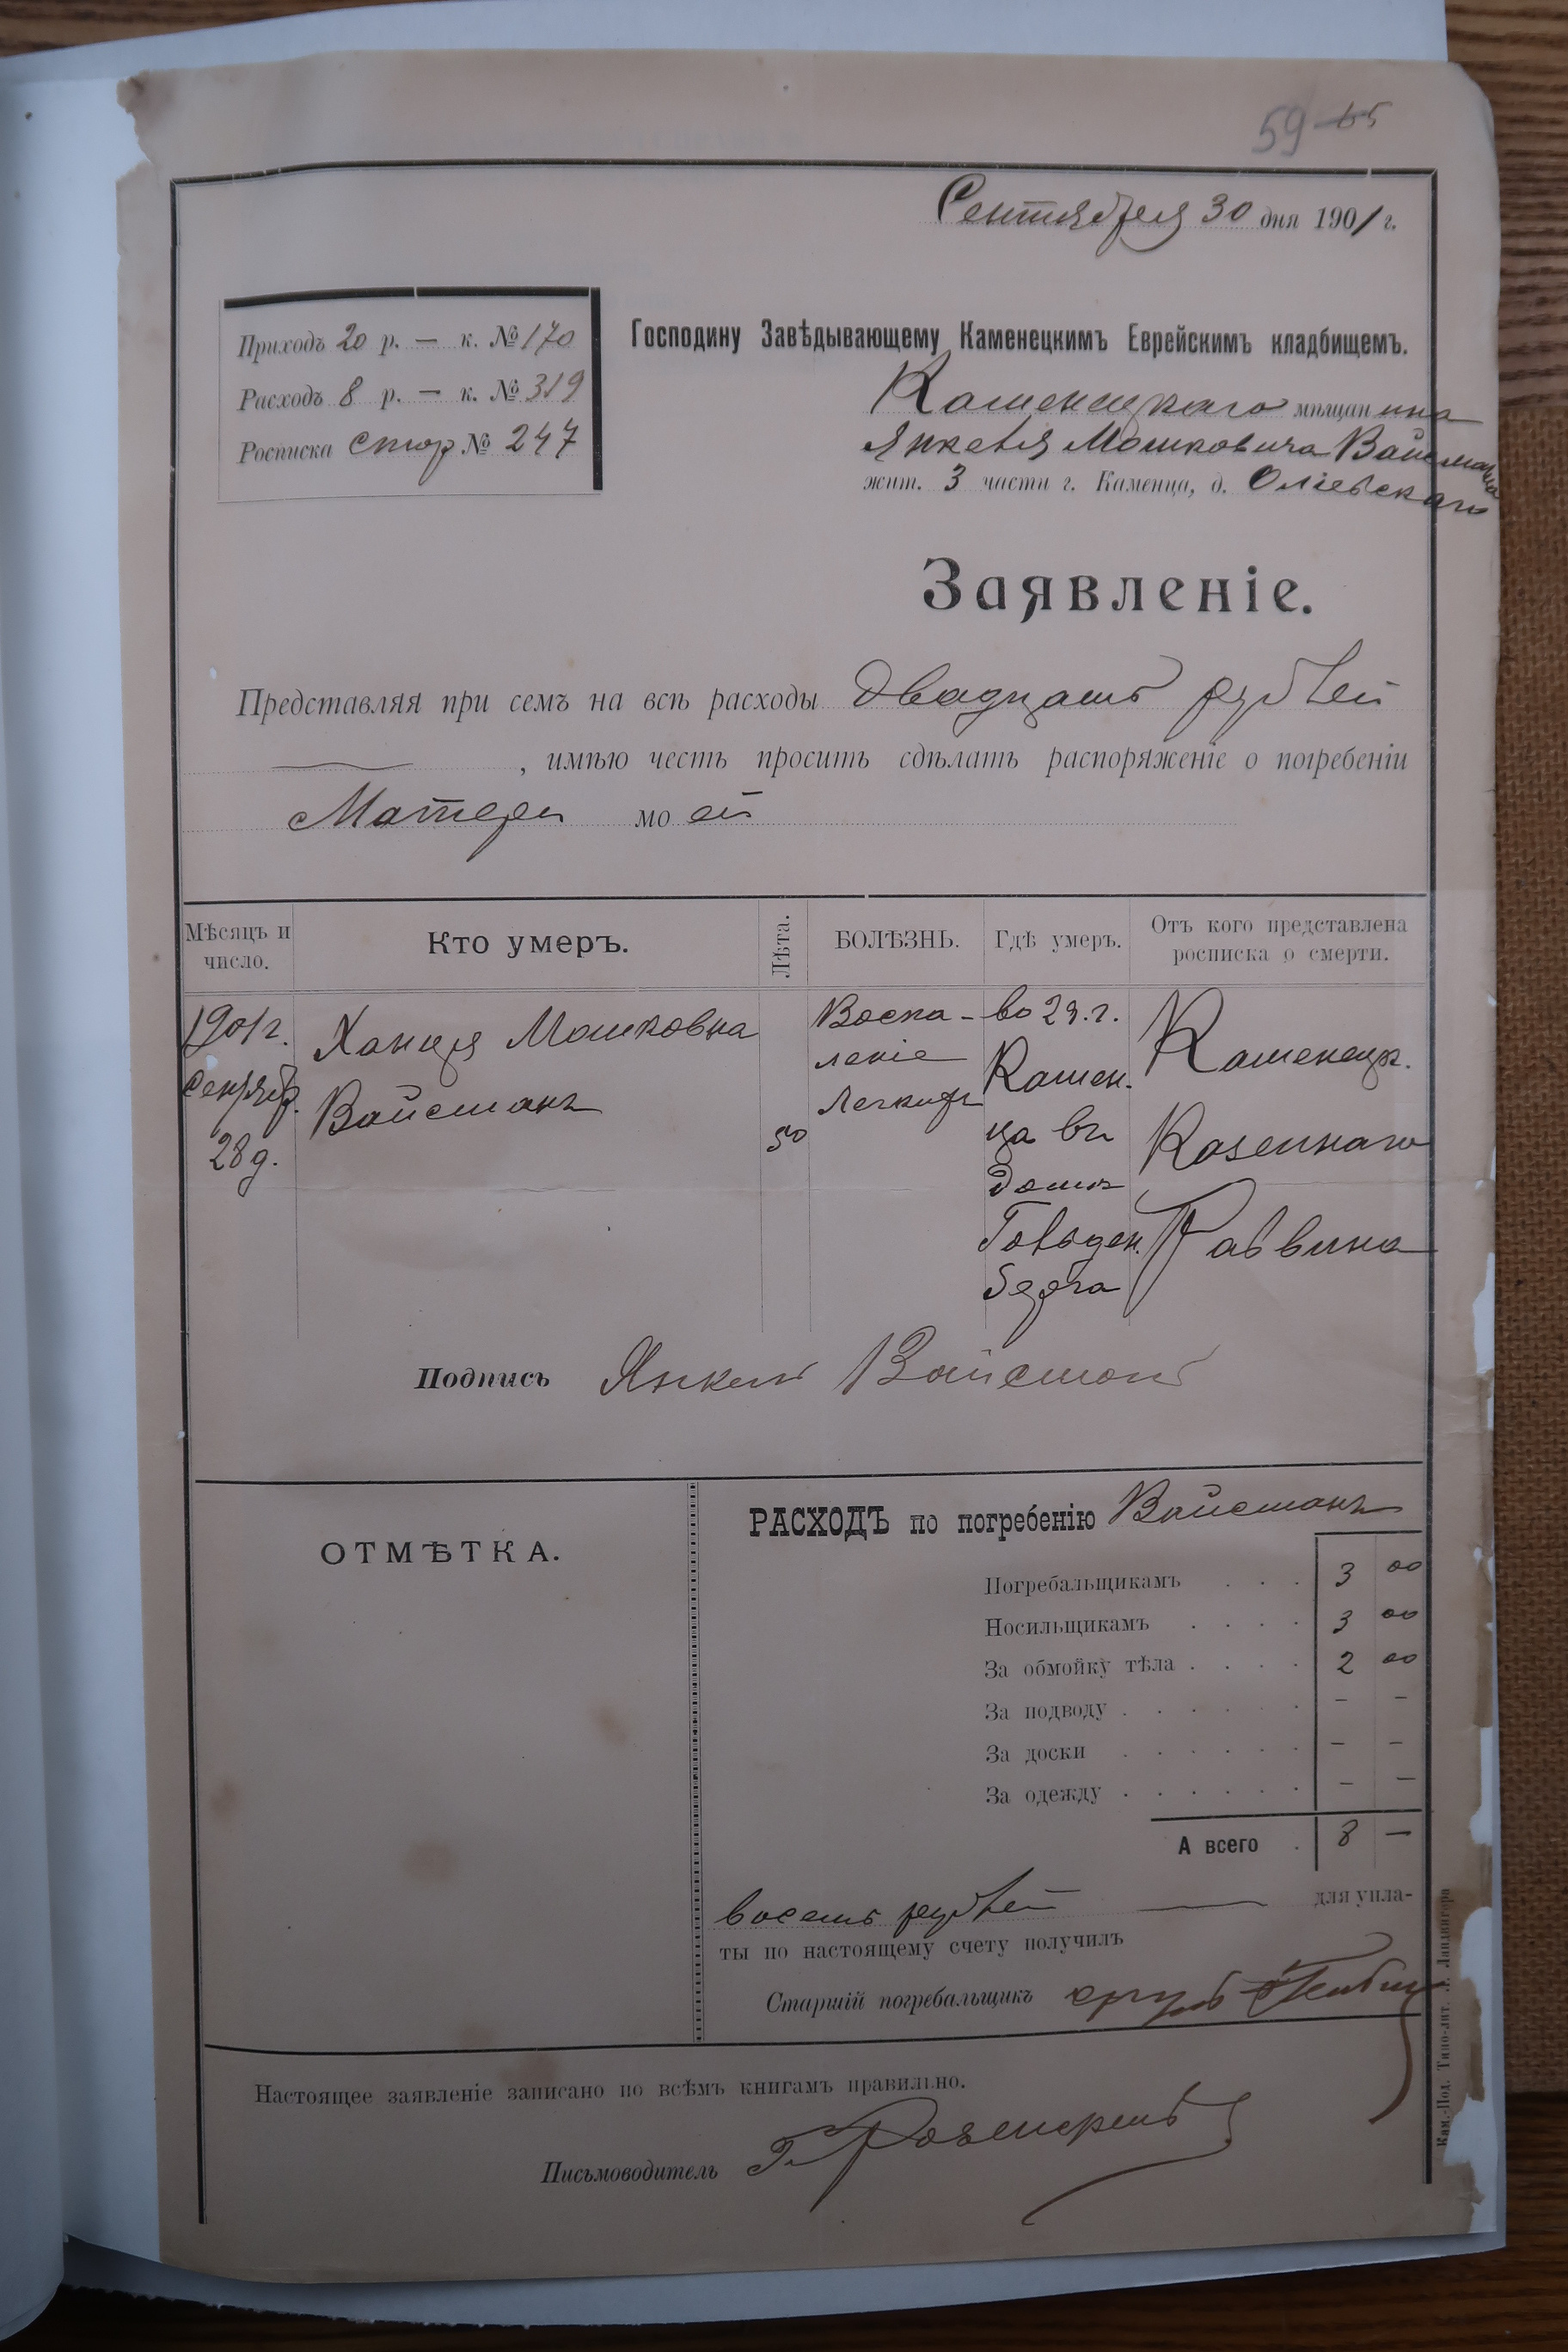 59 65
Сентября 30 дня 1901 г.
Приходъ 20 р. — к. № 170
Расходъ 8 р. — к. № 319
Росписка стор № 247
Господину Завѣдывающему Каменецкимъ Еврейскимъ кладбищемъ.
Каменецкаго мѣщанина
Янкеля Мошковича Вайсмана
жит. 3 части г. Каменца, д. Оліевскаго
Заявленіе.
Представляя при семъ на всѣ расходы двадцать рублей
—, имѣю честь просить сдѣлать распоряженіе о погребеніи
Матери моей
Мѣсяцъ и число.
Кто умеръ.
Лѣта.
БОЛѢЗНЬ.
Гдѣ умеръ.
Отъ кого представлена росписка о смерти.
1901 г.
Сентябр.
28 д.
Ханця Мошковна
Вайсманъ
50
Воспа-
леніе
Легкихъ
во 2 ч. г.
Камен.
ца въ
домѣ
Гольден.
берга
Каменец.
Казеннаго
Раввина
Подпись Янкель Вайсманъ
ОТМѢТКА.
РАСХОДЪ по погребенію Вайсманъ
Погребальщикамъ . . . 3 00
Носильщикамъ . . . . 3 00
За обмойку тѣла . . . . 2 00
За подводу . . . . . . – –
За доски . . . . . . – –
За одежду . . . . . . – –
А всего . 8 —
восемь рублей — для упла-
ты по настоящему счету получилъ
Старшій погребальщикъ
Настоящее заявленіе записано по всѣмъ книгамъ правильно.
Письмоводитель Г. Розенкранъ
Кам.-Под. Типо-лит. Л. Ландвигера